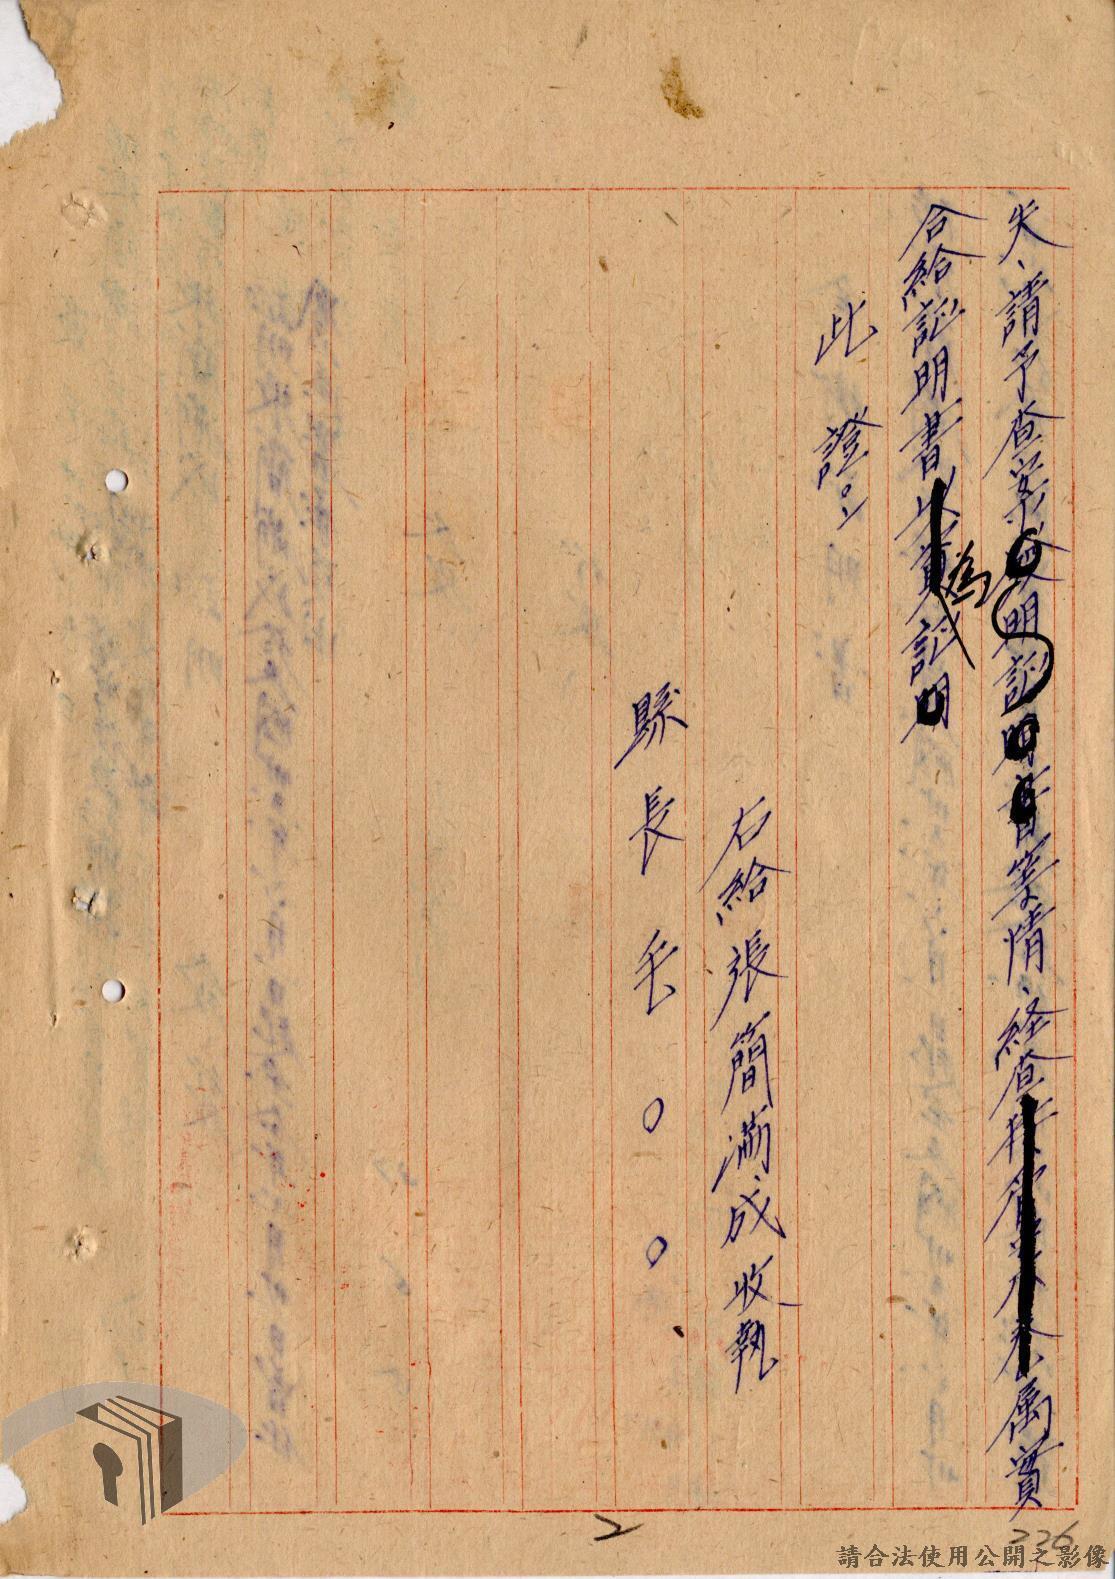 失、請予查案證明証明書等情、経查 属實
合給証明書以資証明為
此證。
右給張簡滿成收執
縣長毛○○
2
226
請合法使用公開之影像